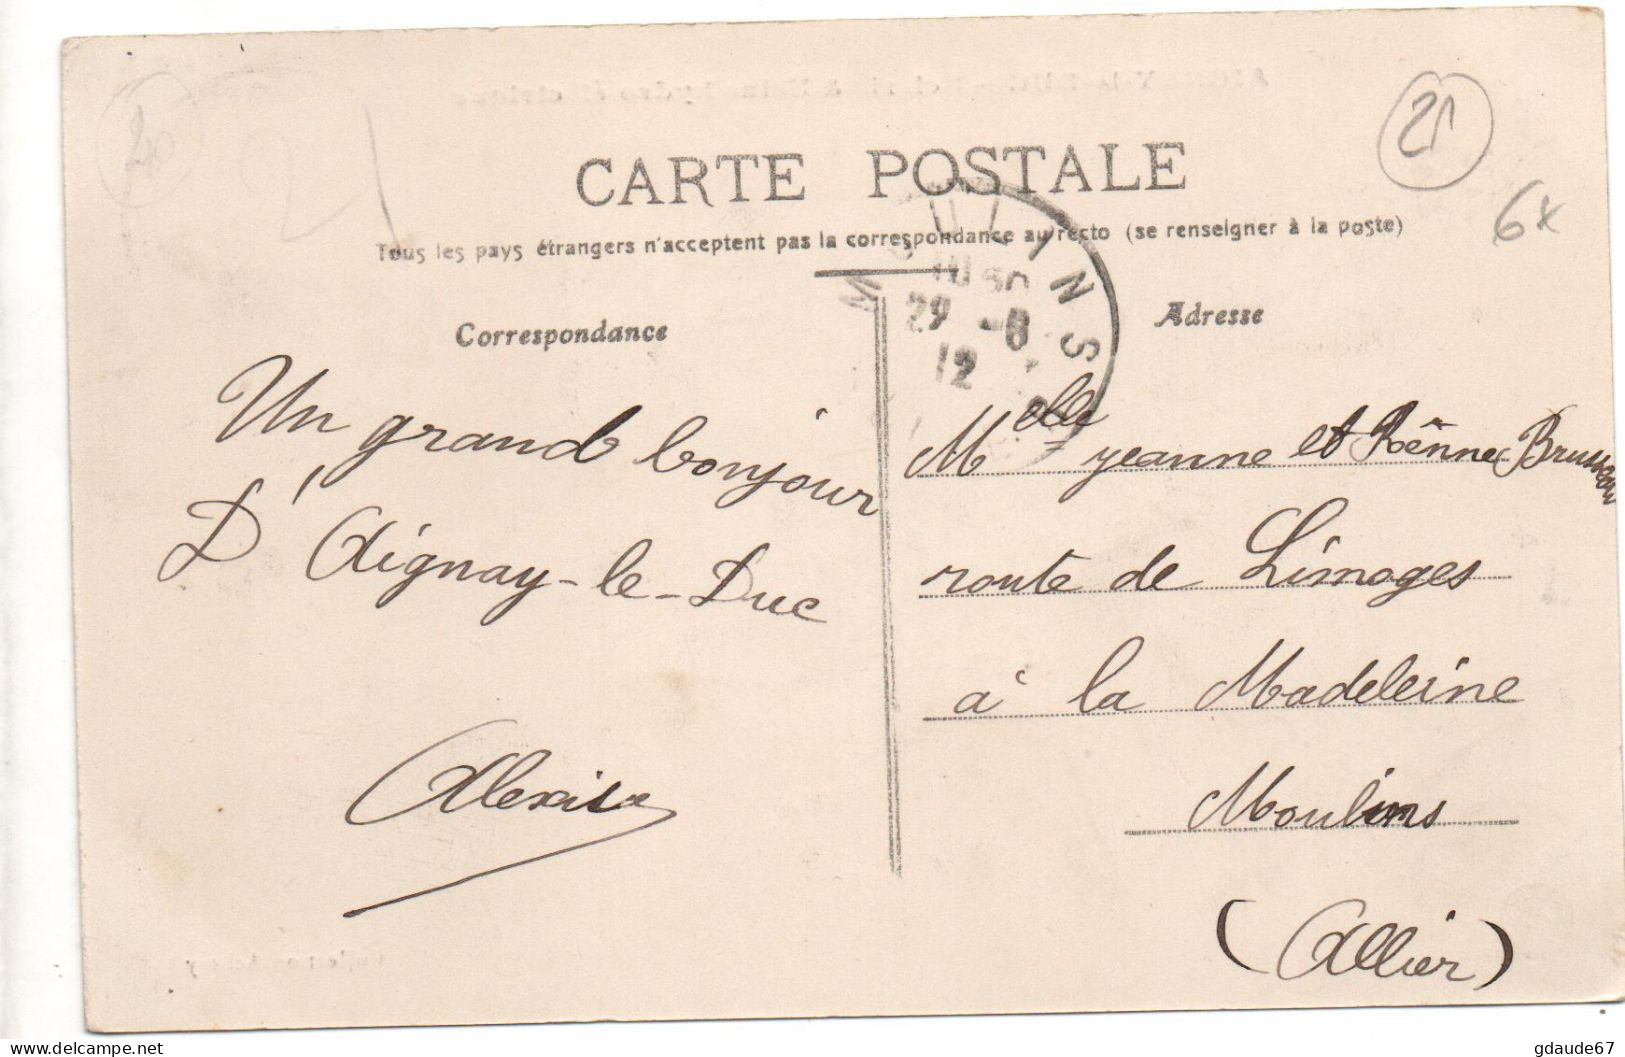 21
20
6x
CARTE POSTALE
Tous les pays étrangers n'acceptent pas la correspondance au recto (se renseigner à la poste)
MOULINS
29 -8
12
Correspondance
Un grand bonjour
D'Aignay-le-Duc
Alexis
Adresse
Melle Jeanne et
route de Limoges
à la Madeleine
Moulins
(Allier)
delcampe.net
gdaude67